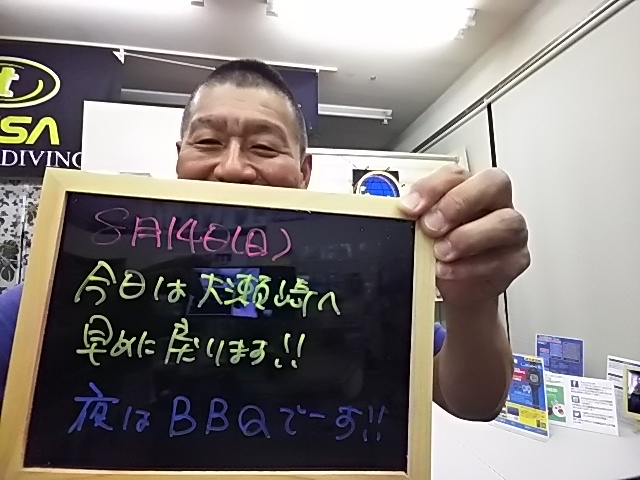 t
SA
DIVING
8月14日(日)
今日は大瀬崎へ
早めに戻ります!!
夜はBBQでーす!!